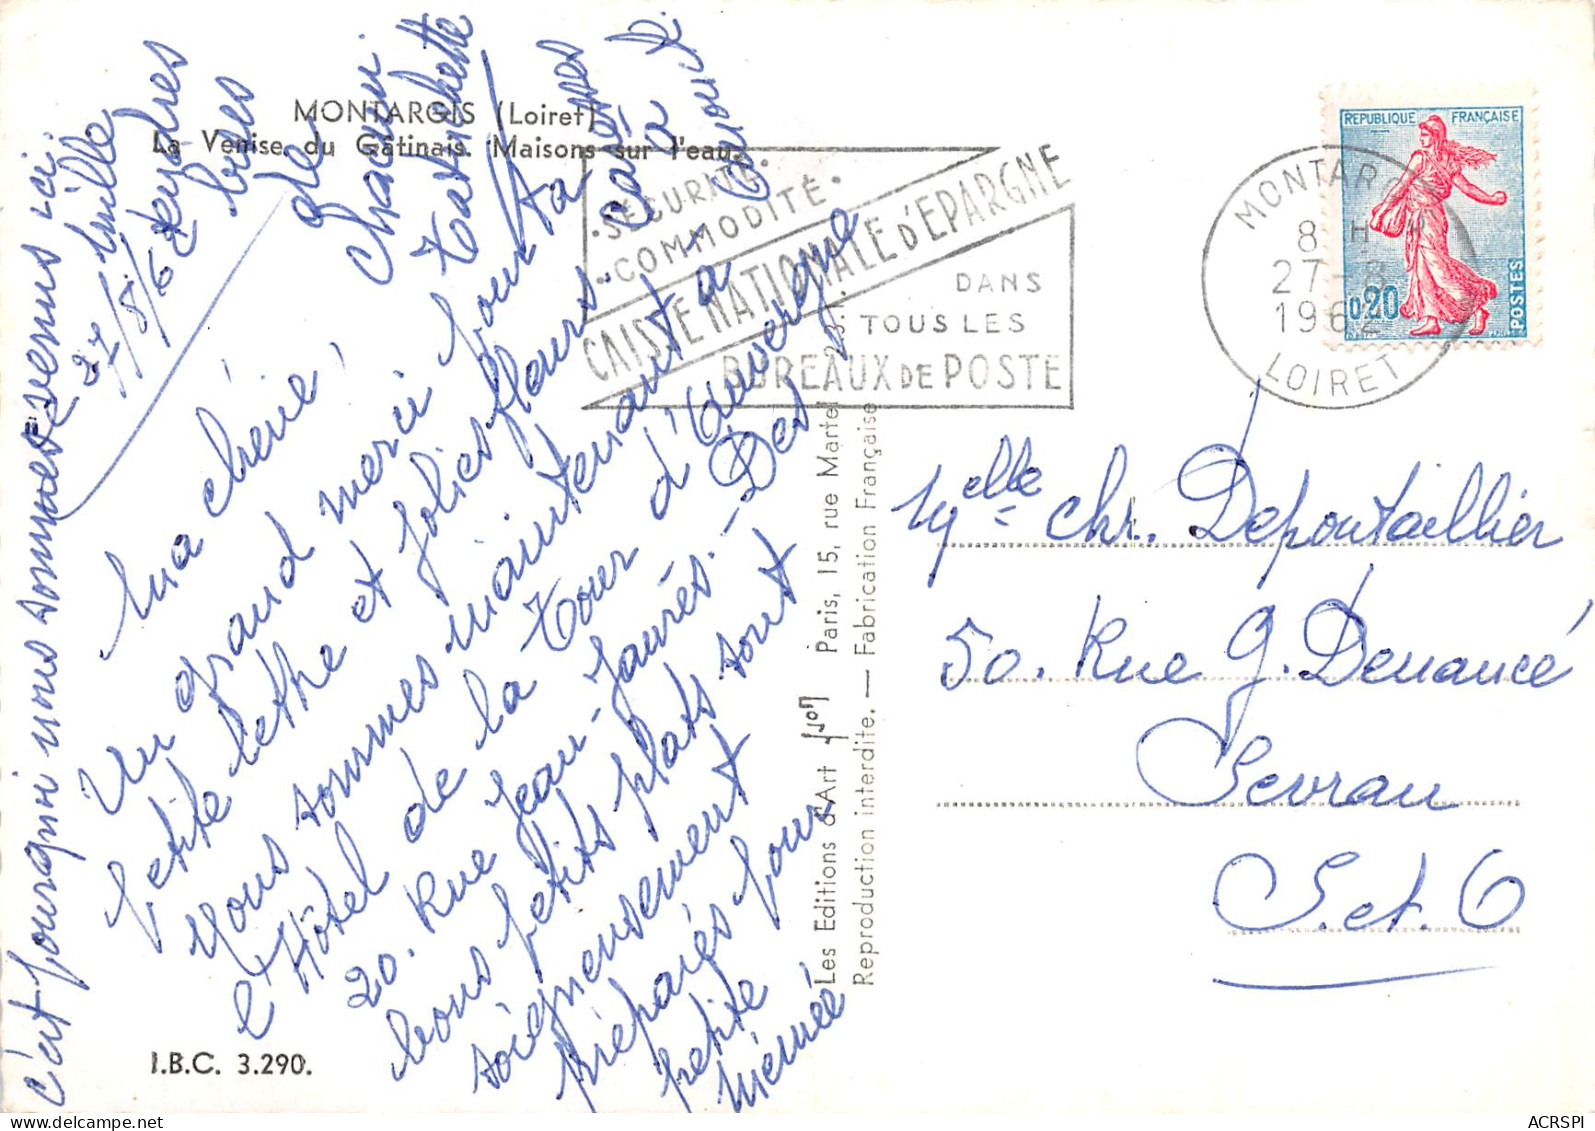 MONTARGIS (Loiret)
La Venise du Gâtinais. Maisons sur l'eau.
27/8/6
Ma chérie,
Un grand merci pour ta
petite lettre et jolies fleurs.
Nous sommes maintenant à
l'Hôtel de la Tour d'Auvergne
20. Rue Jean-Jaurès. - Des
bons petits plats sont
soigneusement
préparés pour
petite
mémée
c'est pourquoi nous sommes revenus ici.
tendres
bises
de
chacun
I.B.C. 3.290.
Les Editions d'Art Paris, 15, rue Martel
Reproduction interdite. — Fabrication Française
SÉCURITÉ.
COMMODITÉ.
CAISSE NATIONALE d'EPARGNE
DANS
TOUS LES
BUREAUX DE POSTE
MONTARGIS
8 H
27-8
1962
LOIRET
REPUBLIQUE FRANÇAISE
0,20
POSTES
Melle Chr. Depontaillier
50. Rue G. Denancé
Sevran
S. et. O
ACRSPI